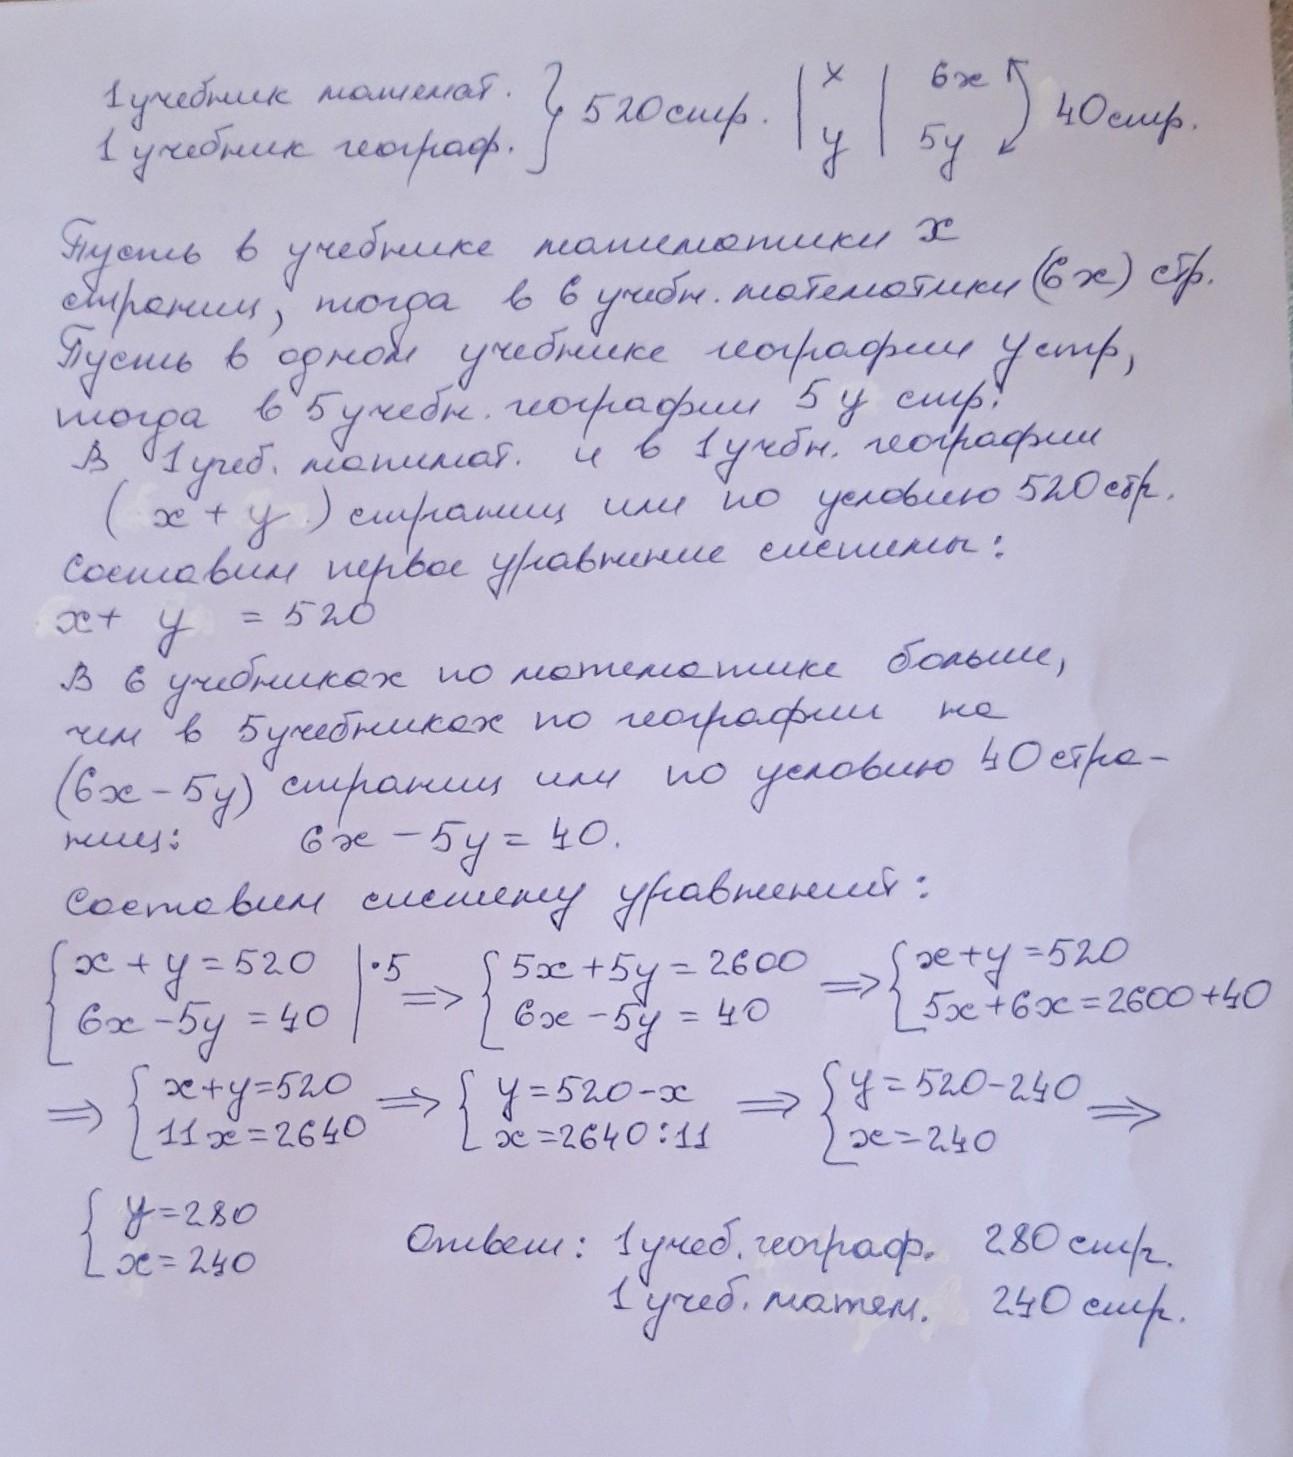 1 учебник математ. } 520 стр. | x | 6x ) 40 стр.
1 учебник географ. y 5y
Пусть в учебнике математики x
страниц, тогда в 6 учебн. математики (6x) стр.
Пусть в одном учебнике географии y стр,
тогда в 5 учебн. географии 5y стр.
В 1 учеб. матимат. и в 1 учбн. географии
( x + y ) страниц или по условию 520 стр.
Составим первое уравнение системы:
x + y = 520
В 6 учебниках по математике больше,
чем в 5 учебниках по географии на
(6x – 5y) страниц или по условию 40 стра-
ниц: 6x – 5y = 40.
Составим систему уравнений:
{ x + y = 520 | · 5 ⇒ { 5x + 5y = 2600 ⇒ { x + y = 520
6x – 5y = 40 6x – 5y = 40 5x + 6x = 2600 + 40
⇒ { x + y = 520 ⇒ { y = 520 – x ⇒ { y = 520 – 240 ⇒
11x = 2640 x = 2640 : 11 x = 240
{ y = 280
x = 240
Ответ: 1 учеб. географ. 280 стр.
1 учеб. матем. 240 стр.